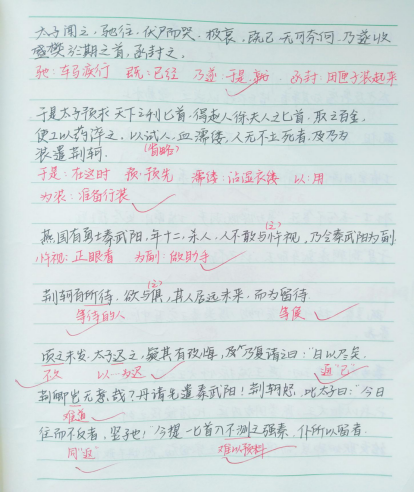 太子闻之，驰往，伏尸而哭，极哀，既已无可奈何，乃遂收
盛樊於期之首，函封之。
驰：车马疾行 既：已经 乃遂：于是就 函封：用匣子装起来
于是太子预求天下之利匕首，得赵人徐夫人之匕首，取之百金，
使工以药淬之，以试人，血濡缕，人无不立死者，乃为
装遣荆轲。 (省略)
于是：在这时 预：预先 濡缕：沾湿衣缕 以：用
为装：准备行装
燕国有勇士秦武阳，年十二，杀人，人不敢与忤视，乃令秦武阳为副。
(之)
忤视：正眼看 为副：做助手
荆轲有所待，欲与俱，其人居远未来，而为留待
(之)
等待的人 等候
顷之未发，太子迟之，疑其有改悔，乃复请之曰："日以尽矣，
不久 以…为迟 通"已"
荆卿岂无意哉？丹请先遣秦武阳！荆轲怒，叱太子曰："今日
难道
往而不反者，竖子也！今提一匕首入不测之强秦，仆所以留者
同"返" 难以预料